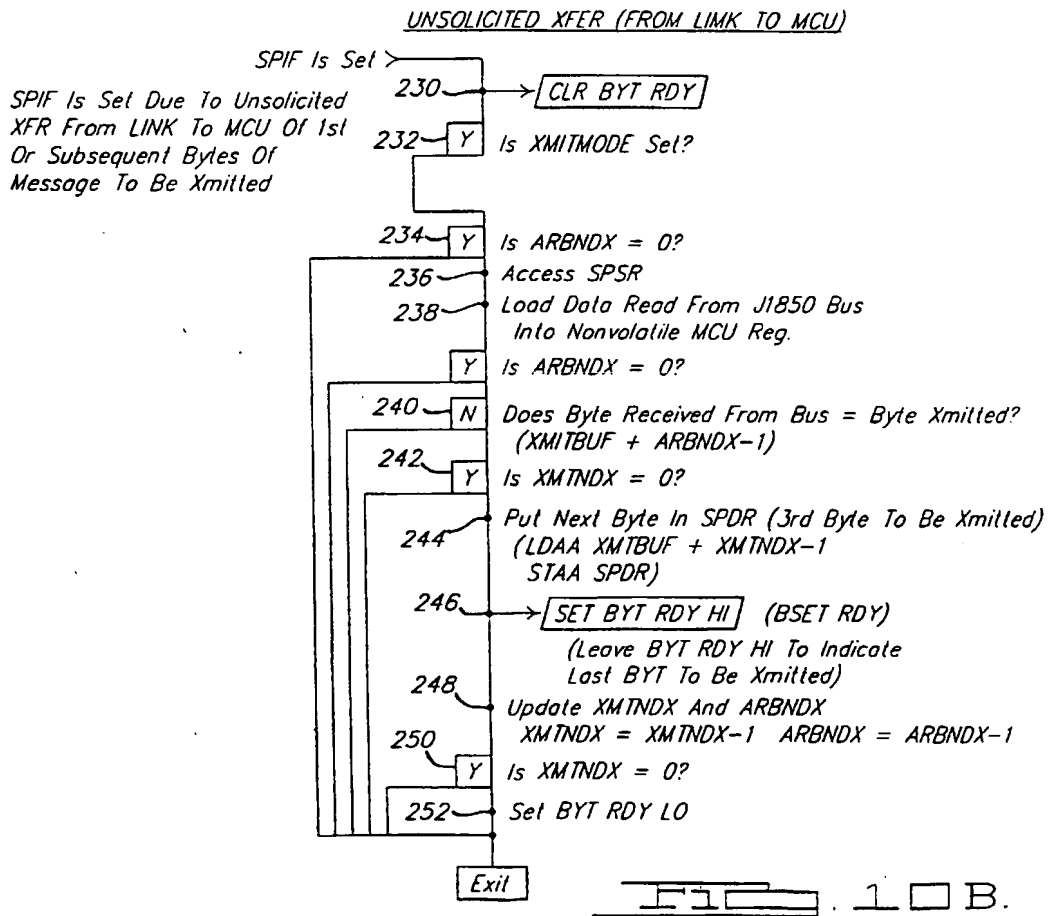 UNSOLICITED XFER (FROM LIMK TO MCU)
SPIF Is Set
230
CLR BYT RDY
SPIF Is Set Due To Unsolicited
XFR From LINK To MCU Of 1st
Or Subsequent Bytes Of
Message To Be Xmitted
232 Y Is XMITMODE Set?
234 Y Is ARBNDX = 0?
236 Access SPSR
238 Load Data Read From J1850 Bus
Into Nonvolatile MCU Reg.
Y Is ARBNDX = 0?
240 N Does Byte Received From Bus = Byte Xmitted?
(XMITBUF + ARBNDX-1)
242 Y Is XMTNDX = 0?
244 Put Next Byte In SPDR (3rd Byte To Be Xmitted)
(LDAA XMTBUF + XMTNDX-1
STAA SPDR)
246 SET BYT RDY HI (BSET RDY)
(Leave BYT RDY HI To Indicate
Last BYT To Be Xmitted)
248 Update XMTNDX And ARBNDX
XMTNDX = XMTNDX-1 ARBNDX = ARBNDX-1
250 Y Is XMTNDX = 0?
252 Set BYT RDY LO
Exit
FIG. 10B.